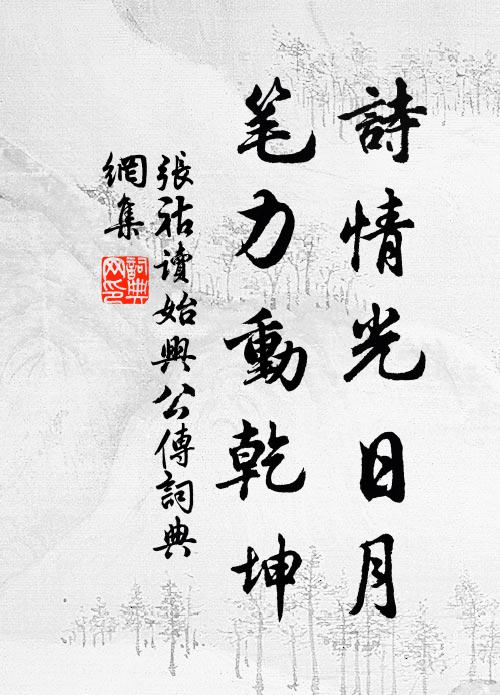 詩情光日月
笔力動乾坤
張祜讀始興公傳詞典
網集
詞典
网印